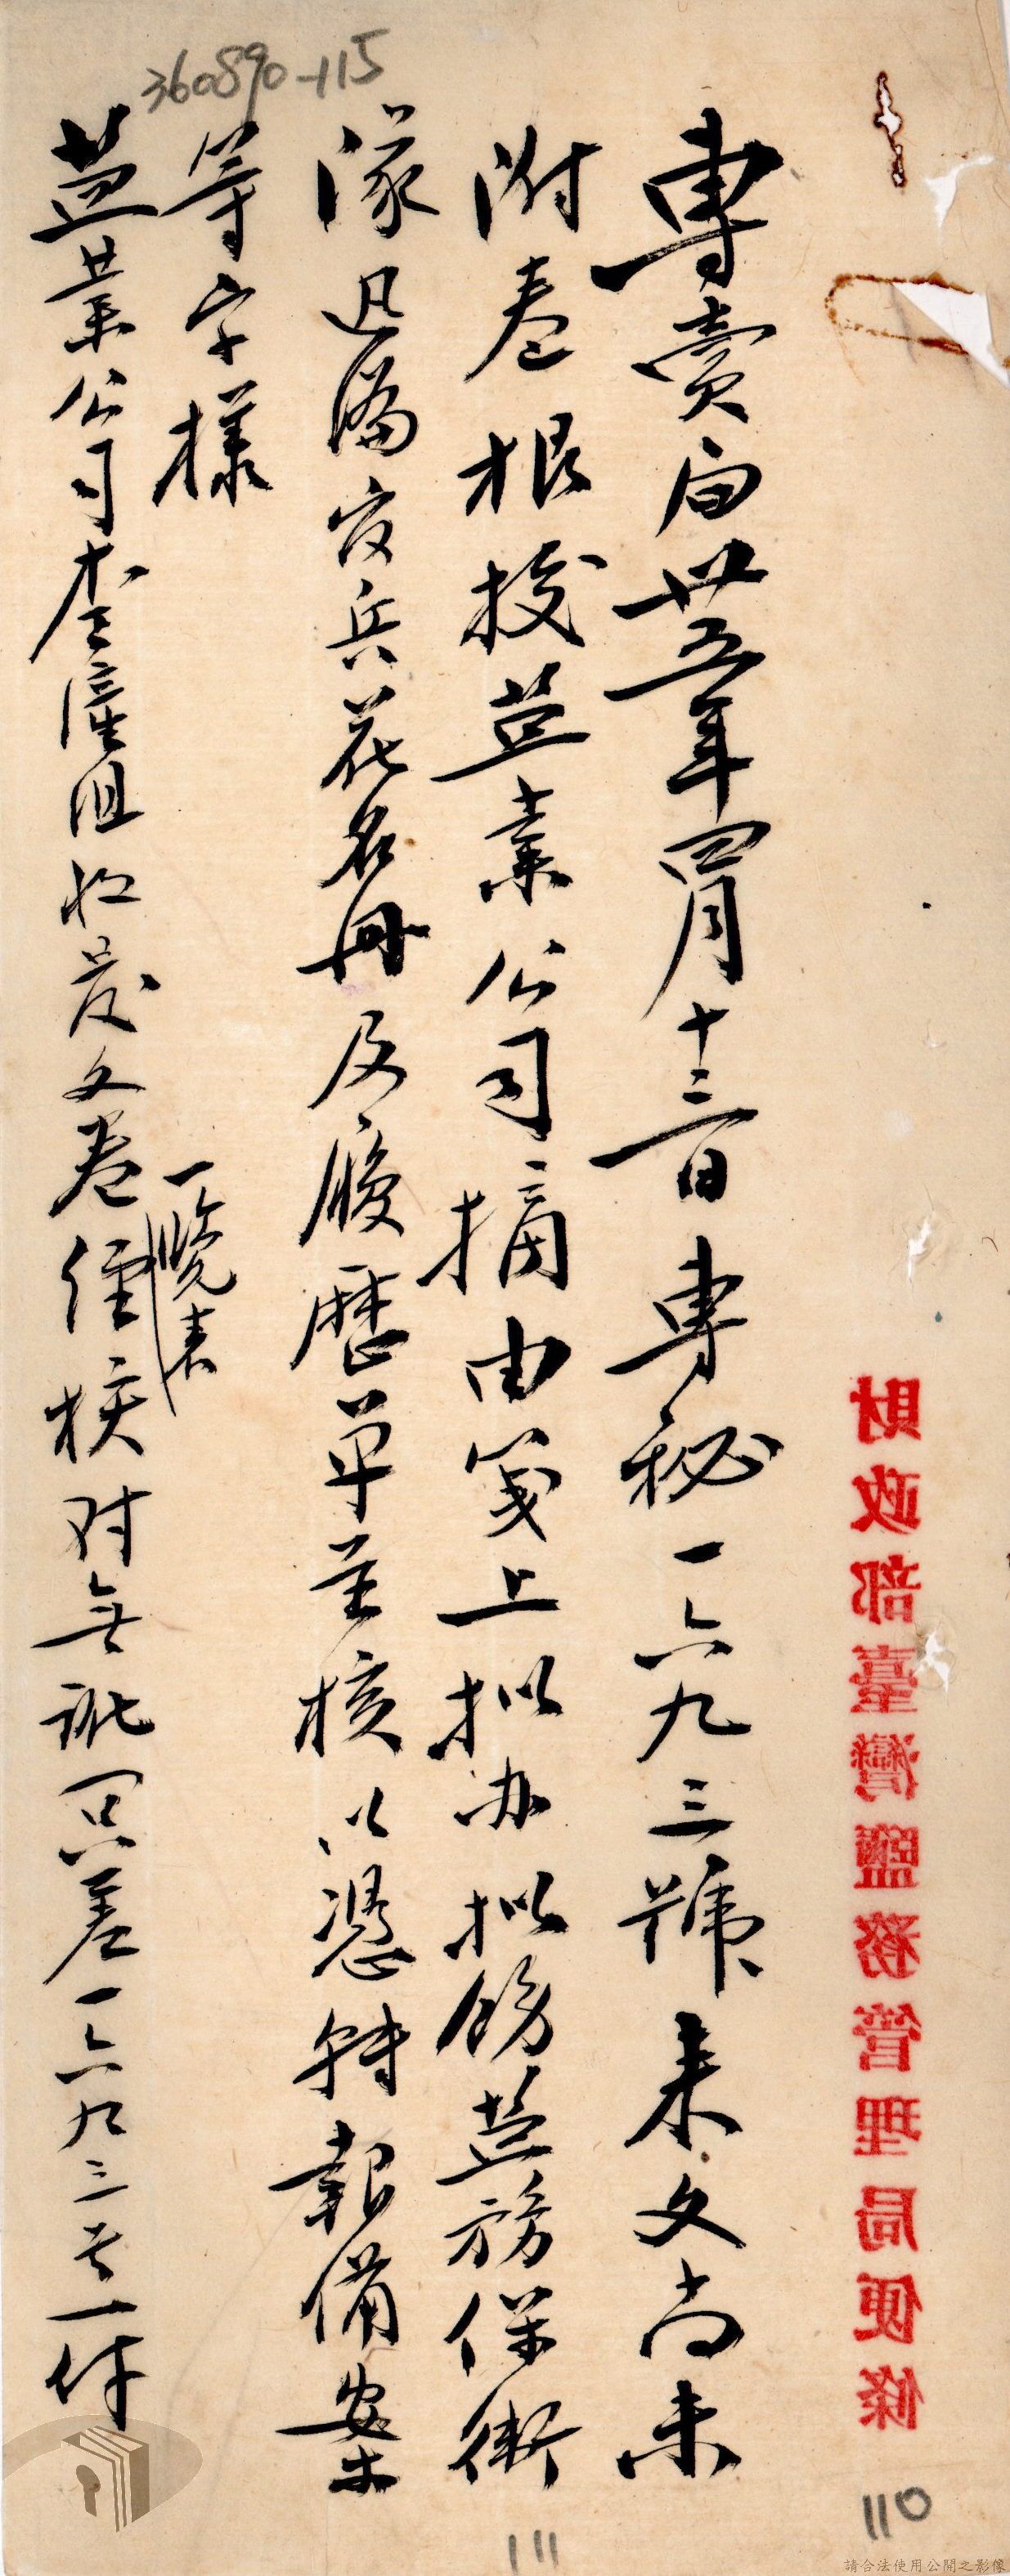 財政部臺灣鹽務管理局便條
專賣局卅五年四月十三日專秘一六九三號來文尚未
附卷根按盐業公司摘由箋上拟办拟飭盐務保衛
隊迅繕官兵花名冊及履歷单呈核以憑轉報備案
等字樣
盐業公司李滙沮收发文卷一覽表經核对無訛只差一六九三号一件
360890-115
110
111
請合法使用公開之影像